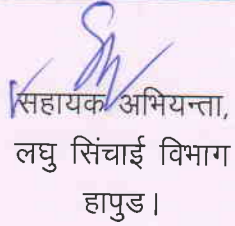 सहायक अभियन्ता,
लघु सिंचाई विभाग
हापुड।